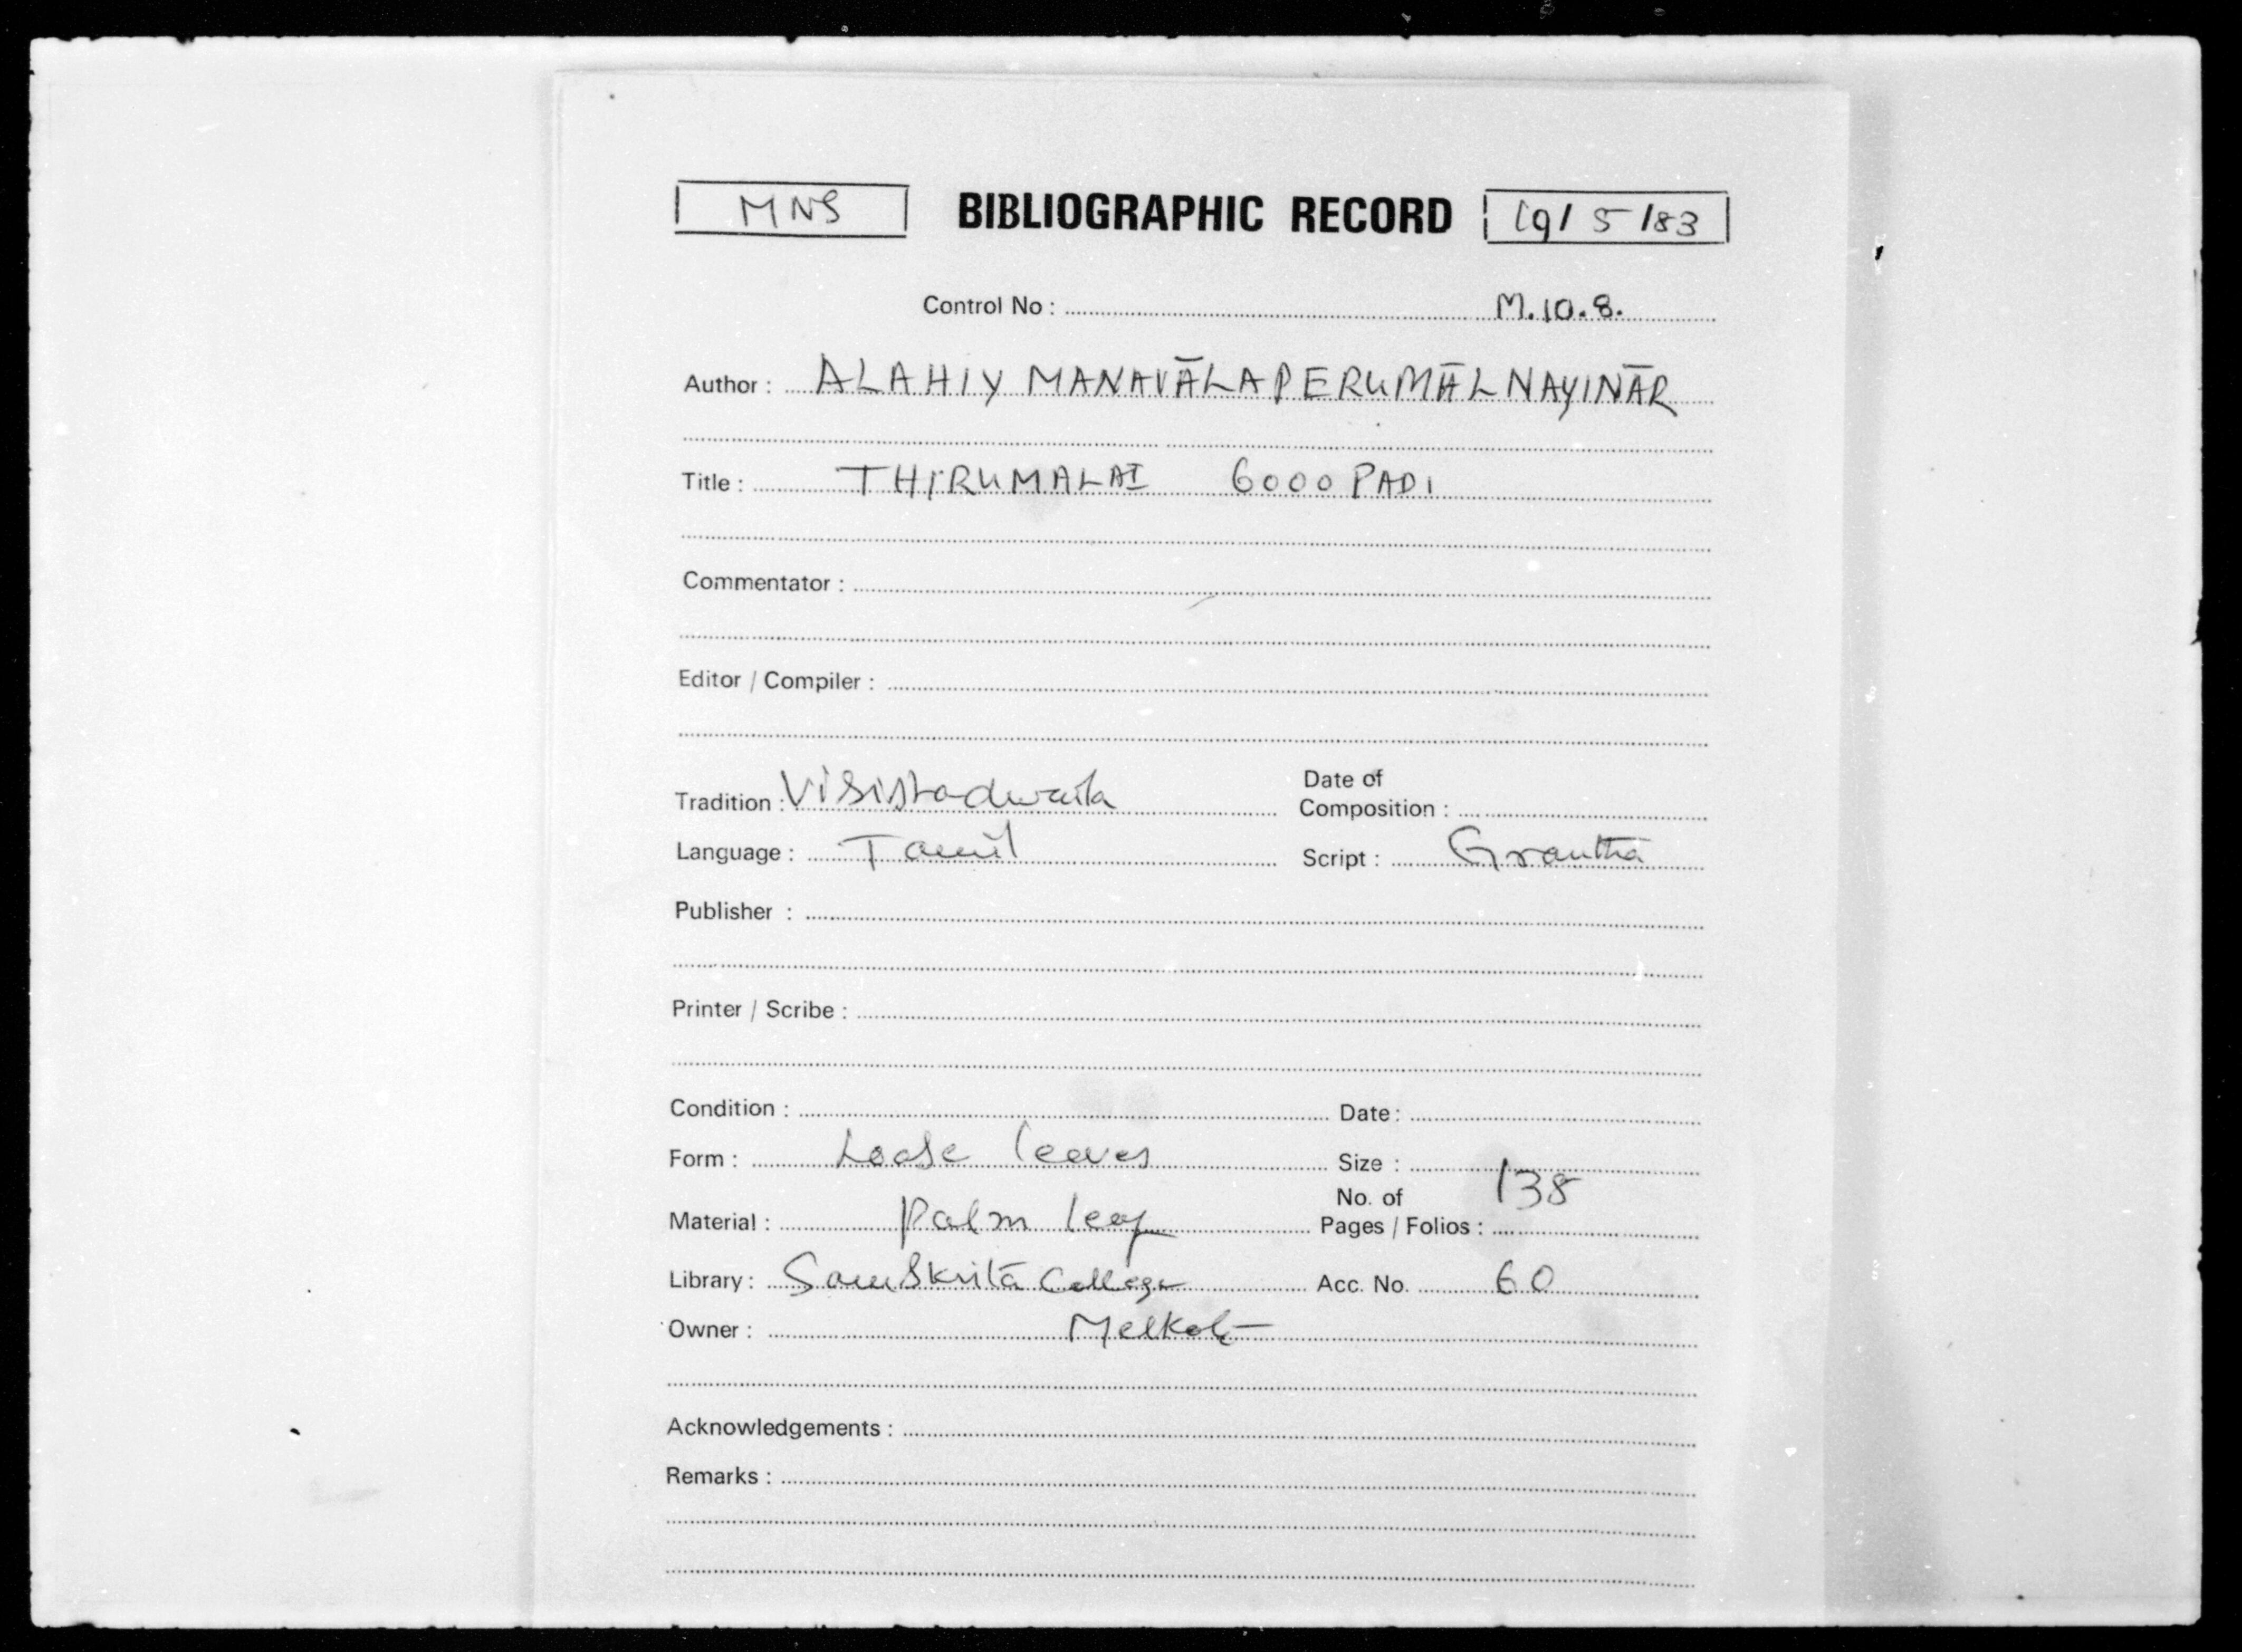 MNS BIBLIOGRAPHIC RECORD 19/5/83
Control No : M.10.8.
Author : ALAHIY MANAVĀLAPERUMĀL NAYINĀR
Title : THIRUMALAI 6000 PADI
Commentator :
Editor / Compiler :
Tradition : Visistadwaita Date of Composition :
Language : Tamil Script : Grantha
Publisher :
Printer / Scribe :
Condition : Date :
Form : Loose leaves Size :
Material : Palm leaf No. of Pages / Folios : 138
Library : Samskrita College Acc. No. 60
Owner : Melkote
Acknowledgements :
Remarks :